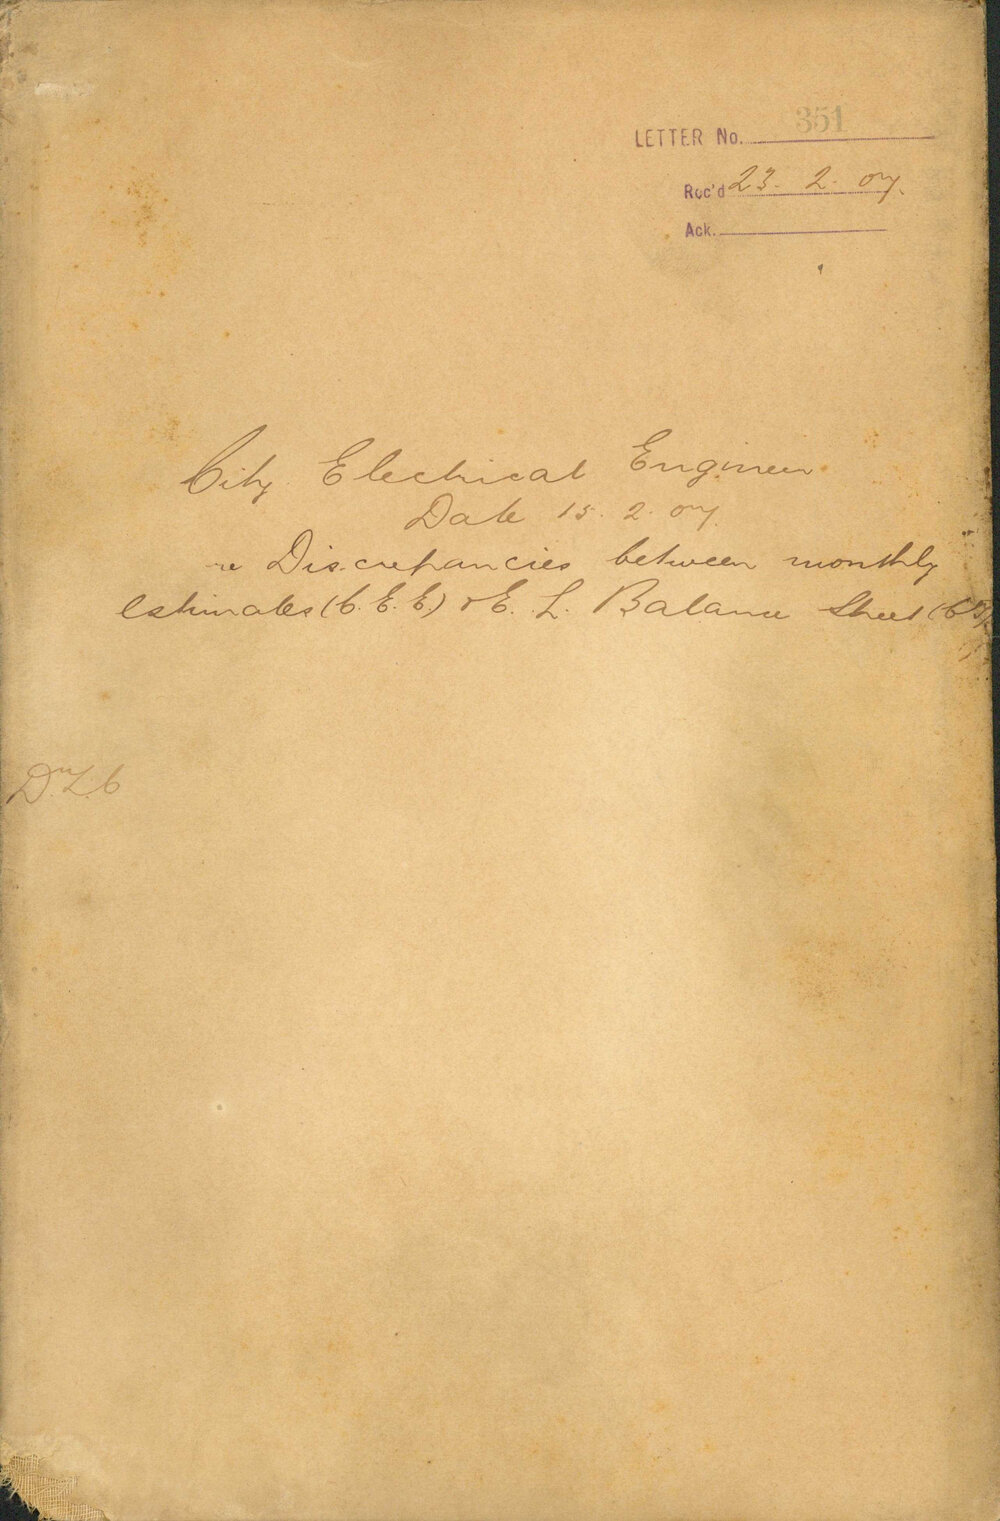 LETTER No. 351
Rec'd 23. 2. 07.
Ack.
City Electrical Engineer
Date 15. 2. 07.
re Discrepancies between monthly
estimates (C.E.E.) & E. L. Balance Sheet